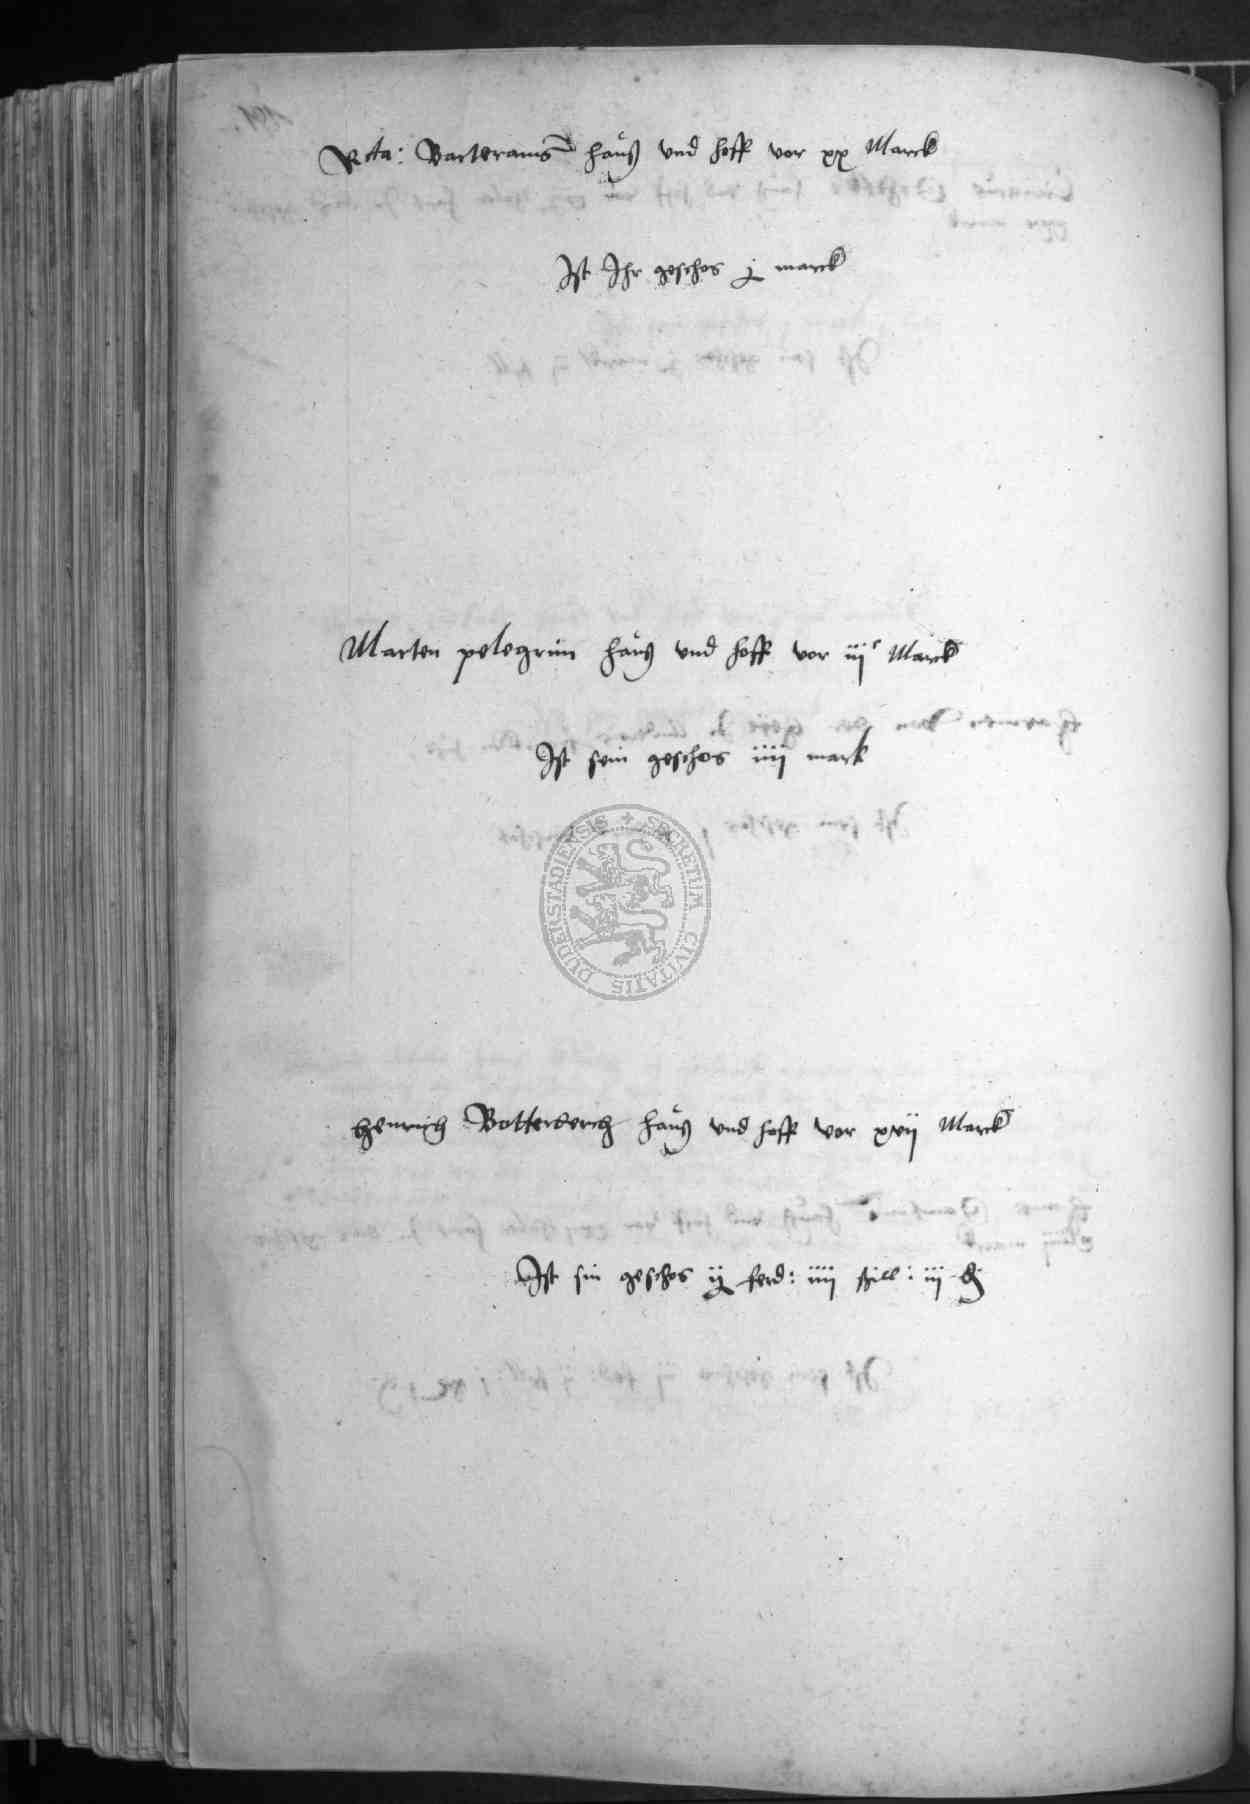 Rcta: Barterams hauß vnd hoff vor xx Marck
Ist Ihr geschos j marck
Marten pelegrim hauß vnd hoff vor iijc Marck
Ist sein geschos iiij mark
SECRETUM CIVITATIS DUDERSTADIENSIS
Henrich Botterderch hauß vnd hoff vor xvij Marck
Ist sin geschos ij ferd: iiij ßill: iij d